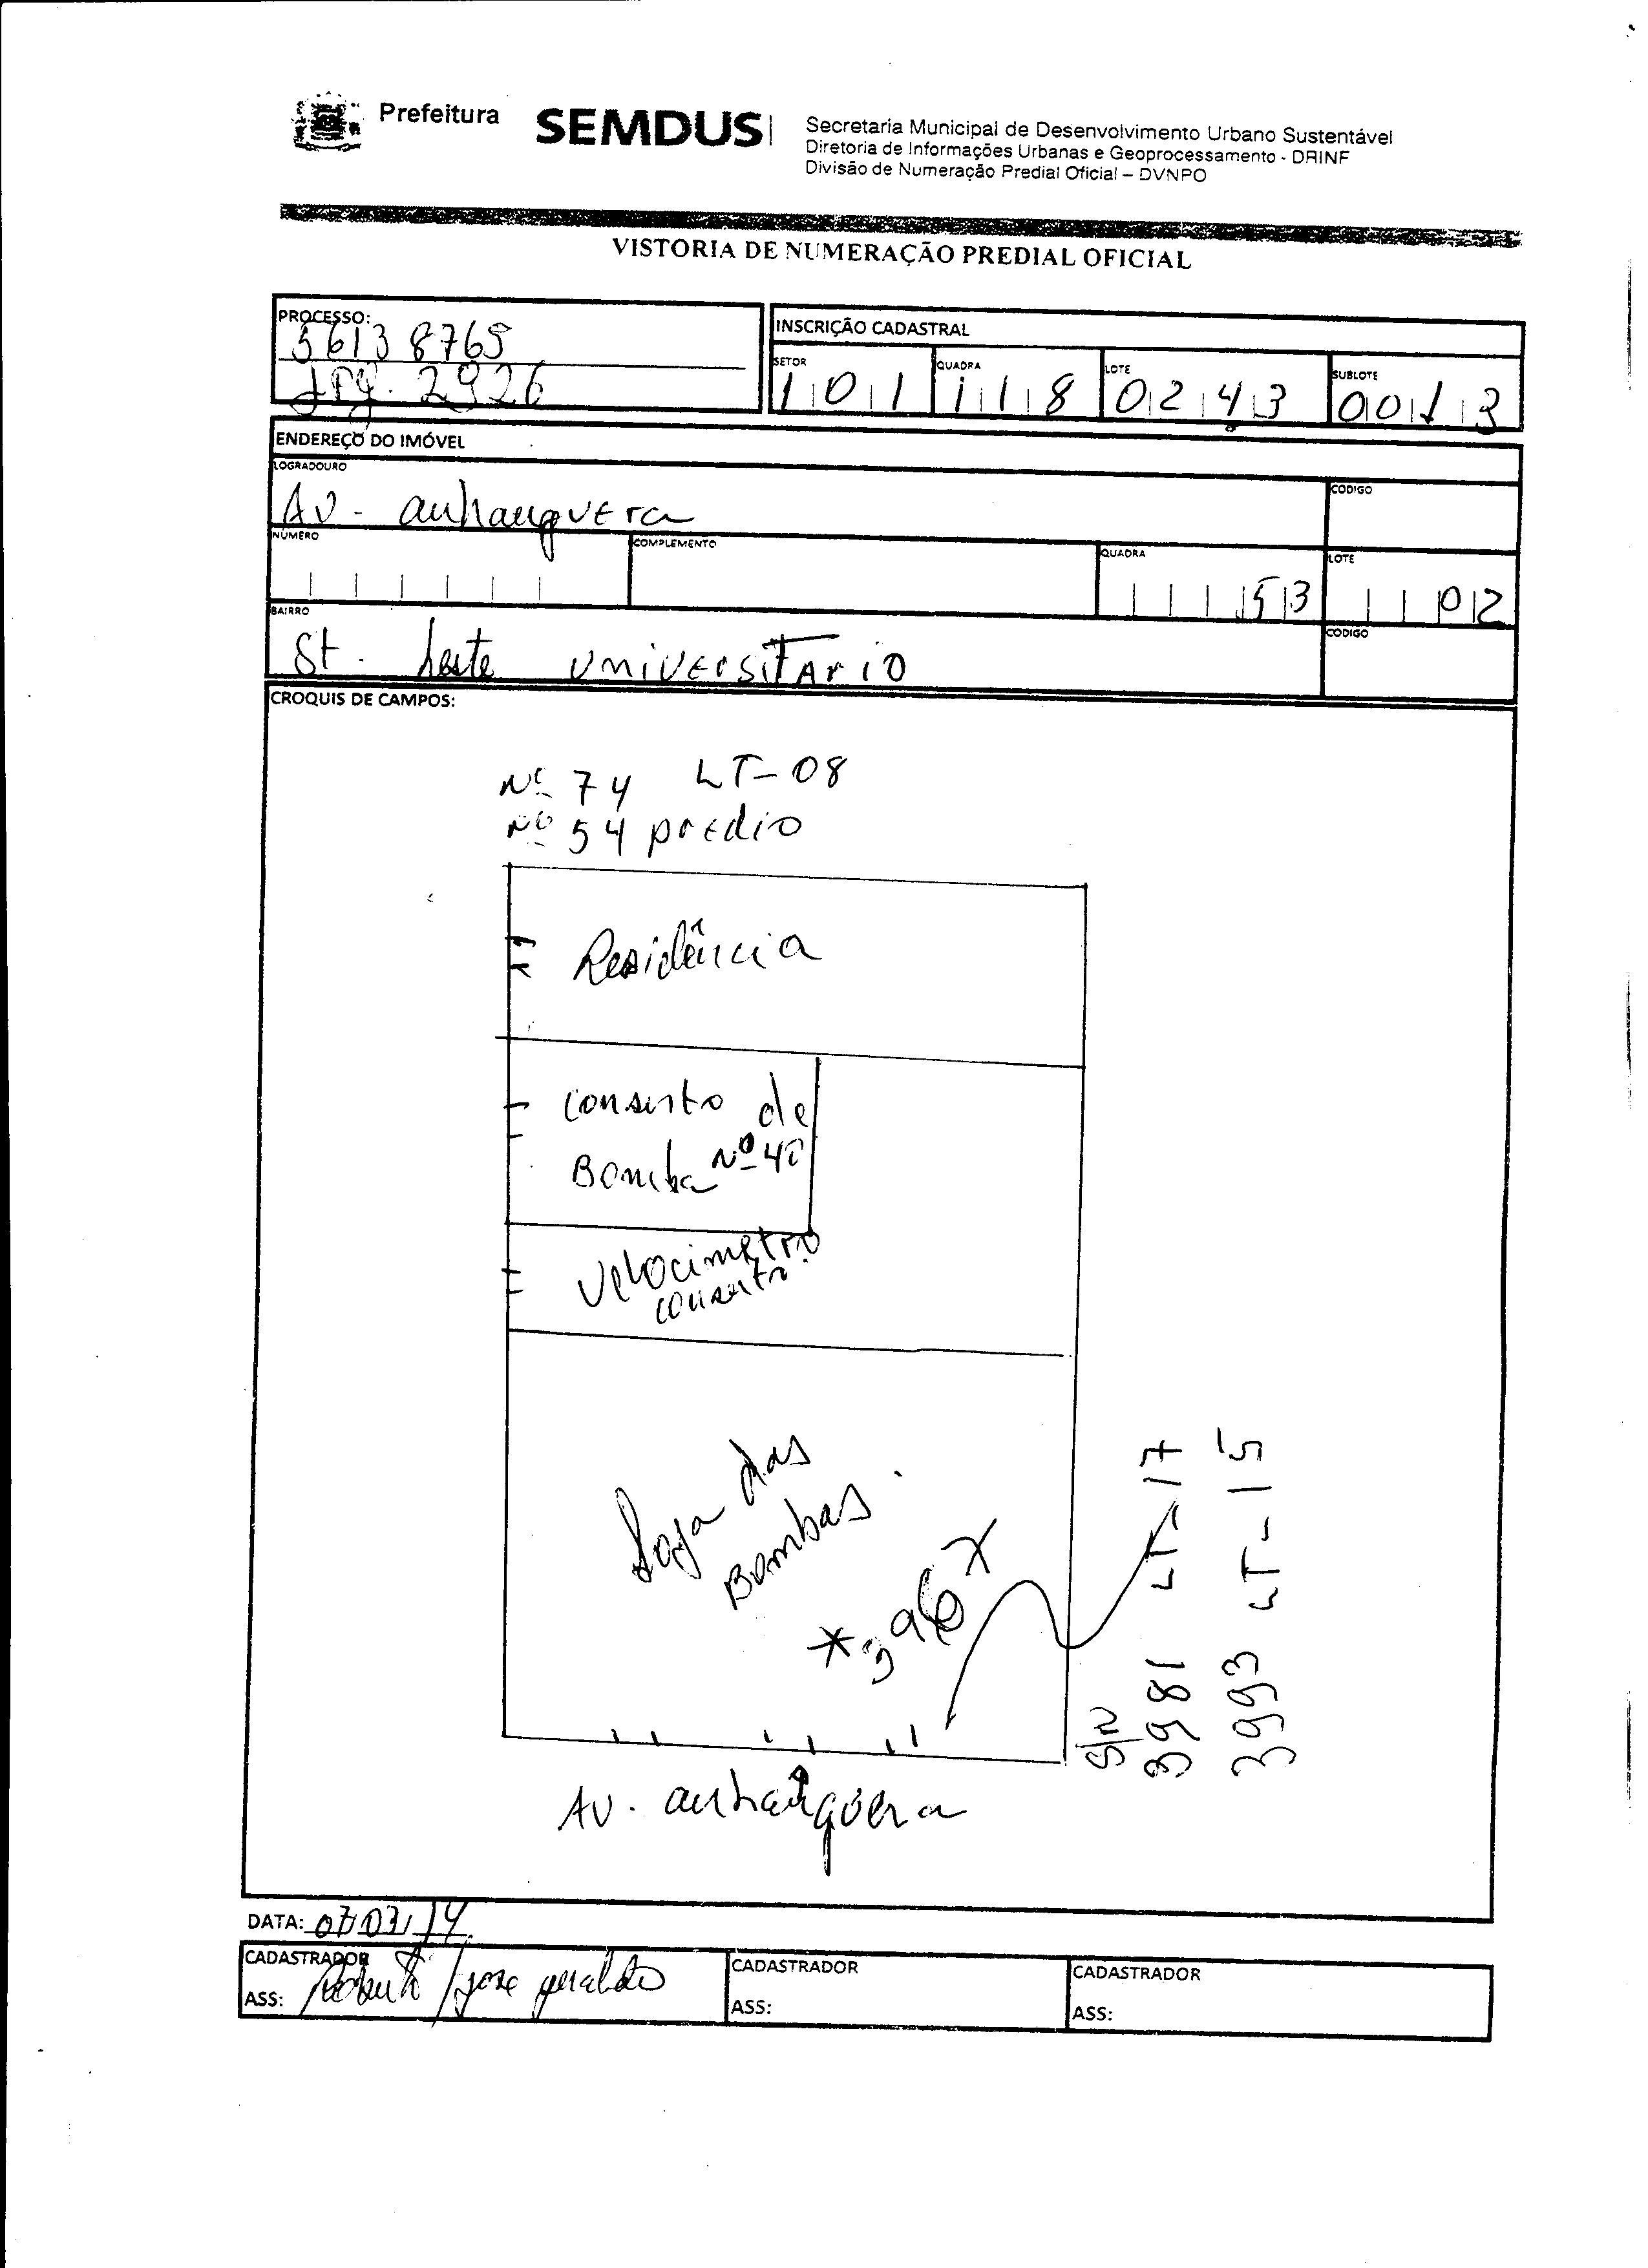 Prefeitura
SEMDUS
Secretaria Municipal de Desenvolvimento Urbano Sustentável
Diretoria de Informações Urbanas e Geoprocessamento - DRINF
Divisão de Numeração Predial Oficial – DVNPO
VISTORIA DE NUMERAÇÃO PREDIAL OFICIAL
PROCESSO:
56138765
2926
INSCRIÇÃO CADASTRAL
SETOR QUADRA LOTE SUBLOTE
101 118 0243 0013
ENDEREÇO DO IMÓVEL
LOGRADOURO CODIGO
AV. anhanguera
NÚMERO COMPLEMENTO QUADRA LOTE
53 02
BAIRRO CODIGO
St. Leste UNIVERSITARIO
CROQUIS DE CAMPOS:
Nº 74 LT-08
Nº 54 predio
Residência
Conserto de
Bomba Nº 40
Velocimetro
conserto.
Loja das
Bombas.
*3967
S/N
3981 LT-17
3993 LT-15
AV. anhanguera
DATA: 07/03/14
CADASTRADOR CADASTRADOR CADASTRADOR
ASS: / jose geraldo ASS: ASS: